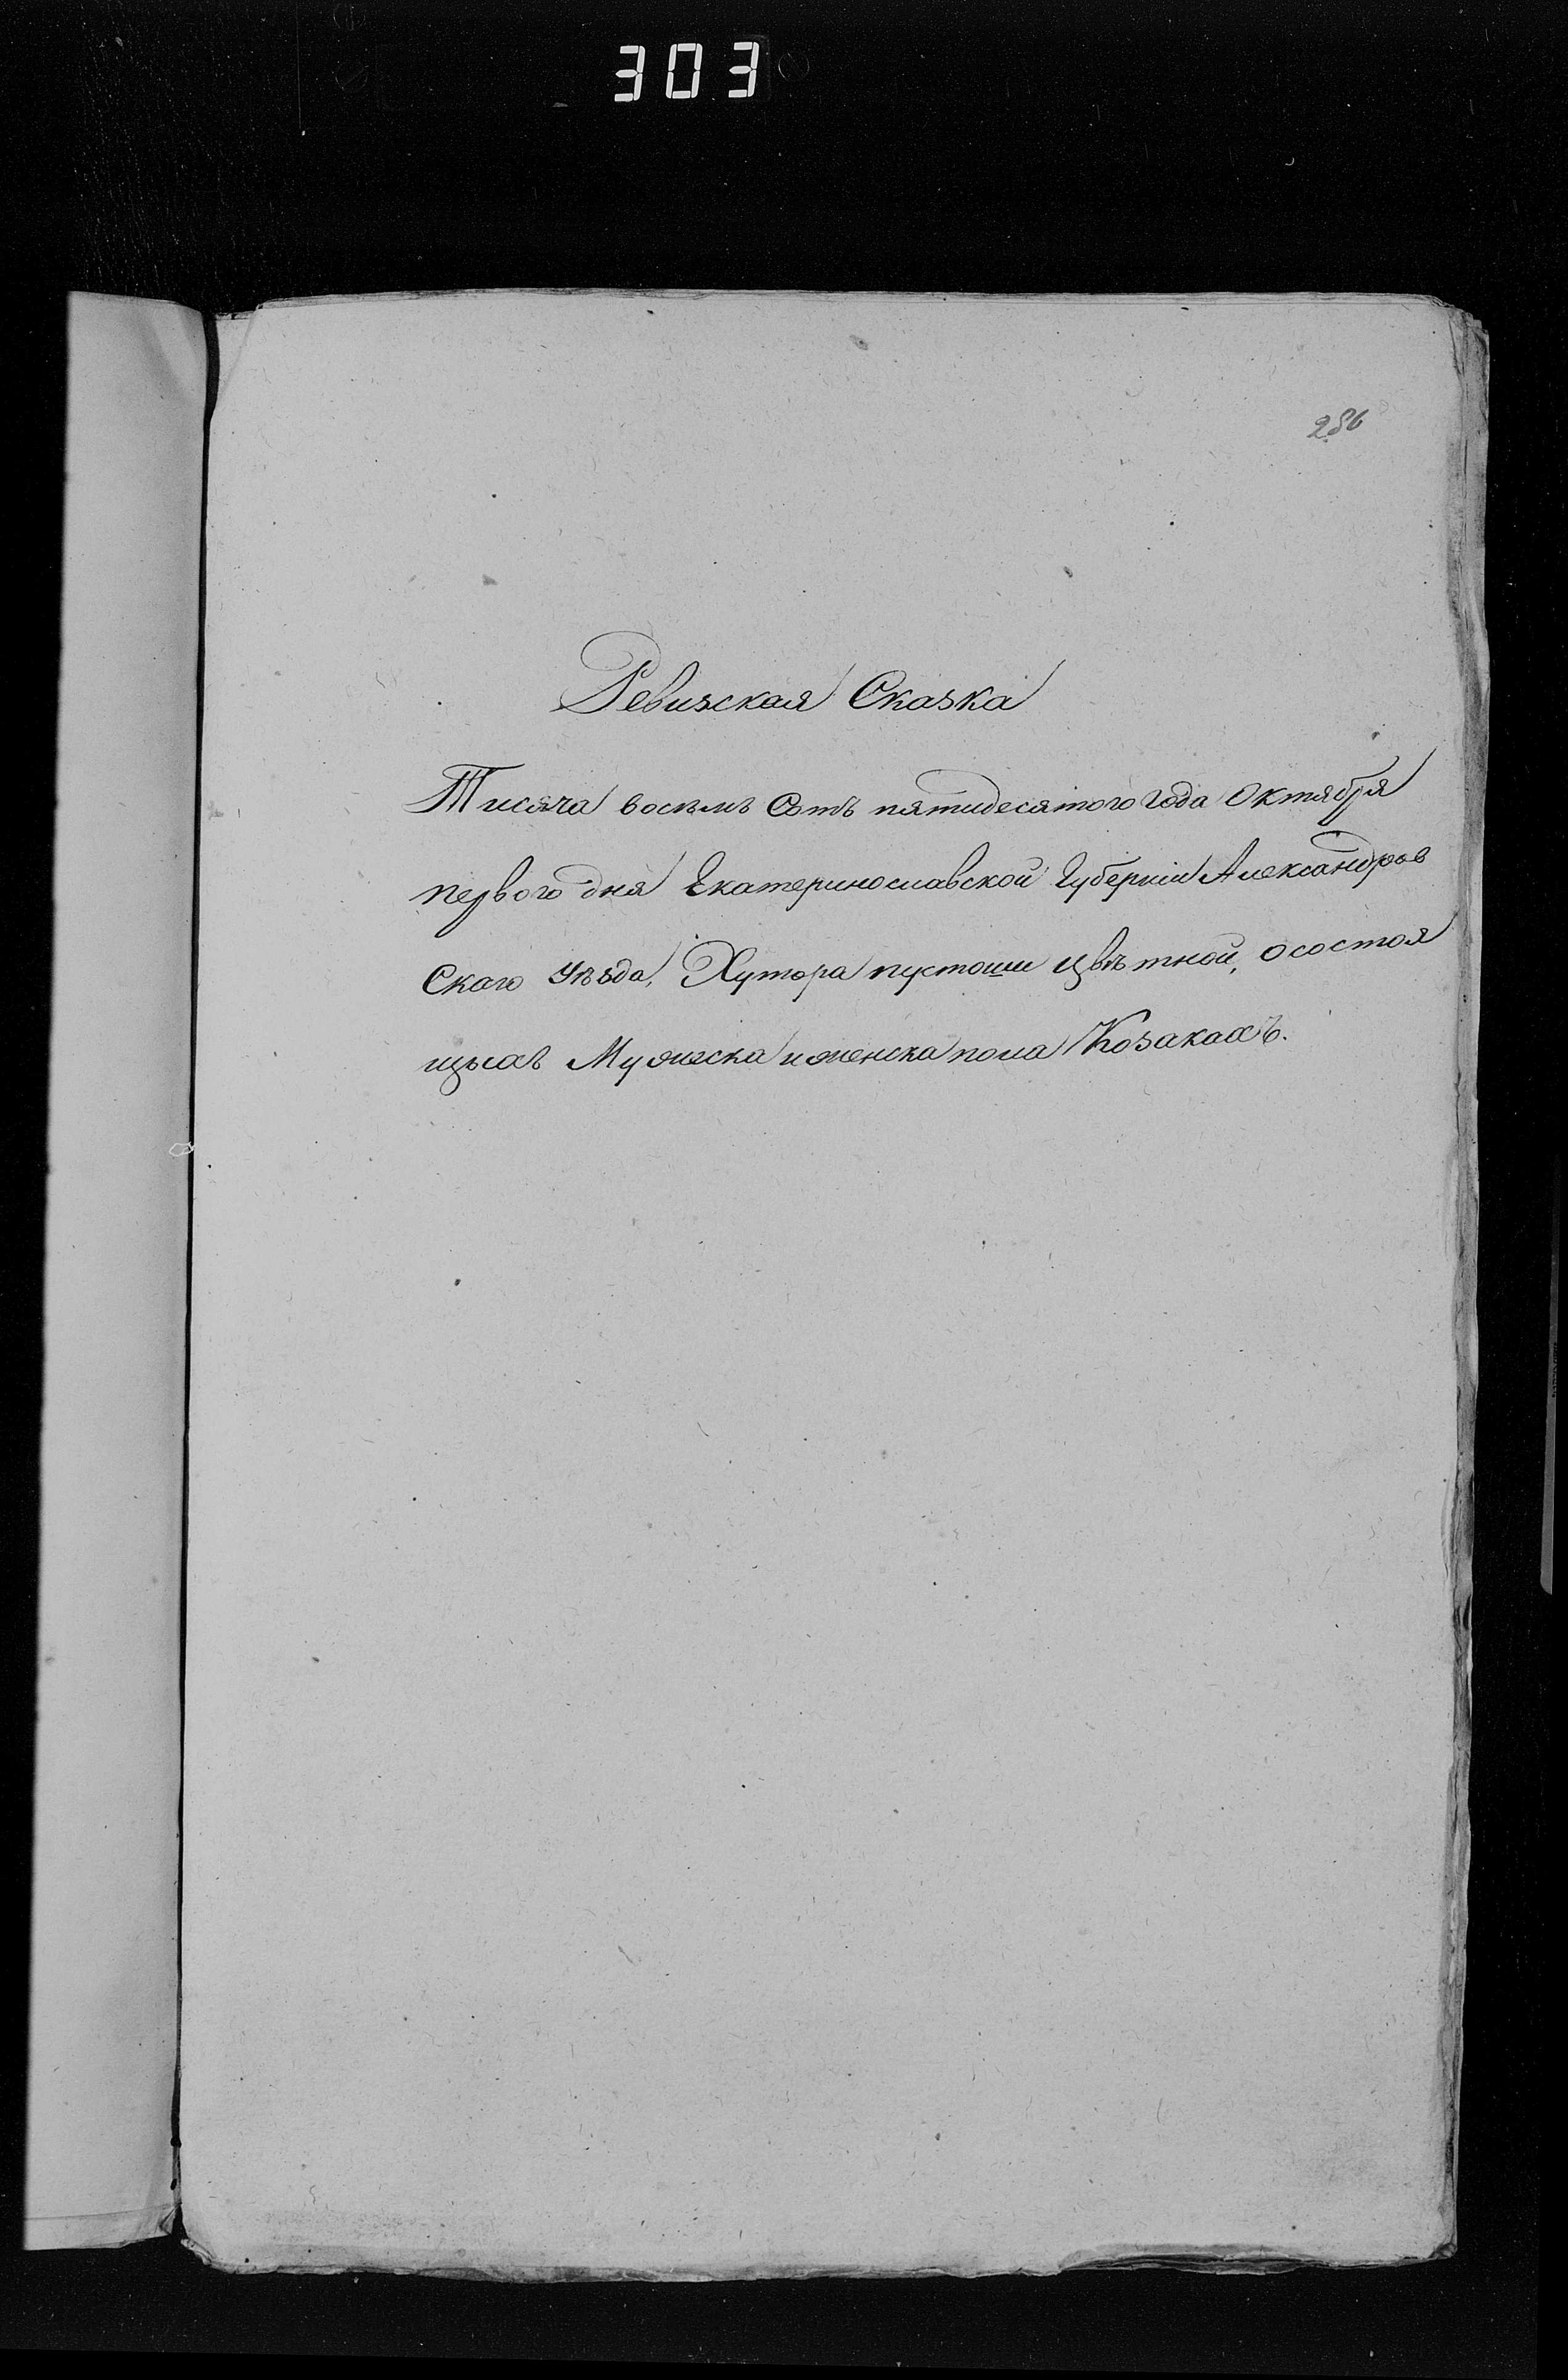 303
286
Ревизская Сказка
Тисяча восемь Сотъ пятидесятого года Октября
первого дня Екатеринославской Губерніи Александров
Ского Уѣзда, Хутора пустоши Цвѣтной, о состоя
щыхъ Мужеска и женска пола Козакахъ.